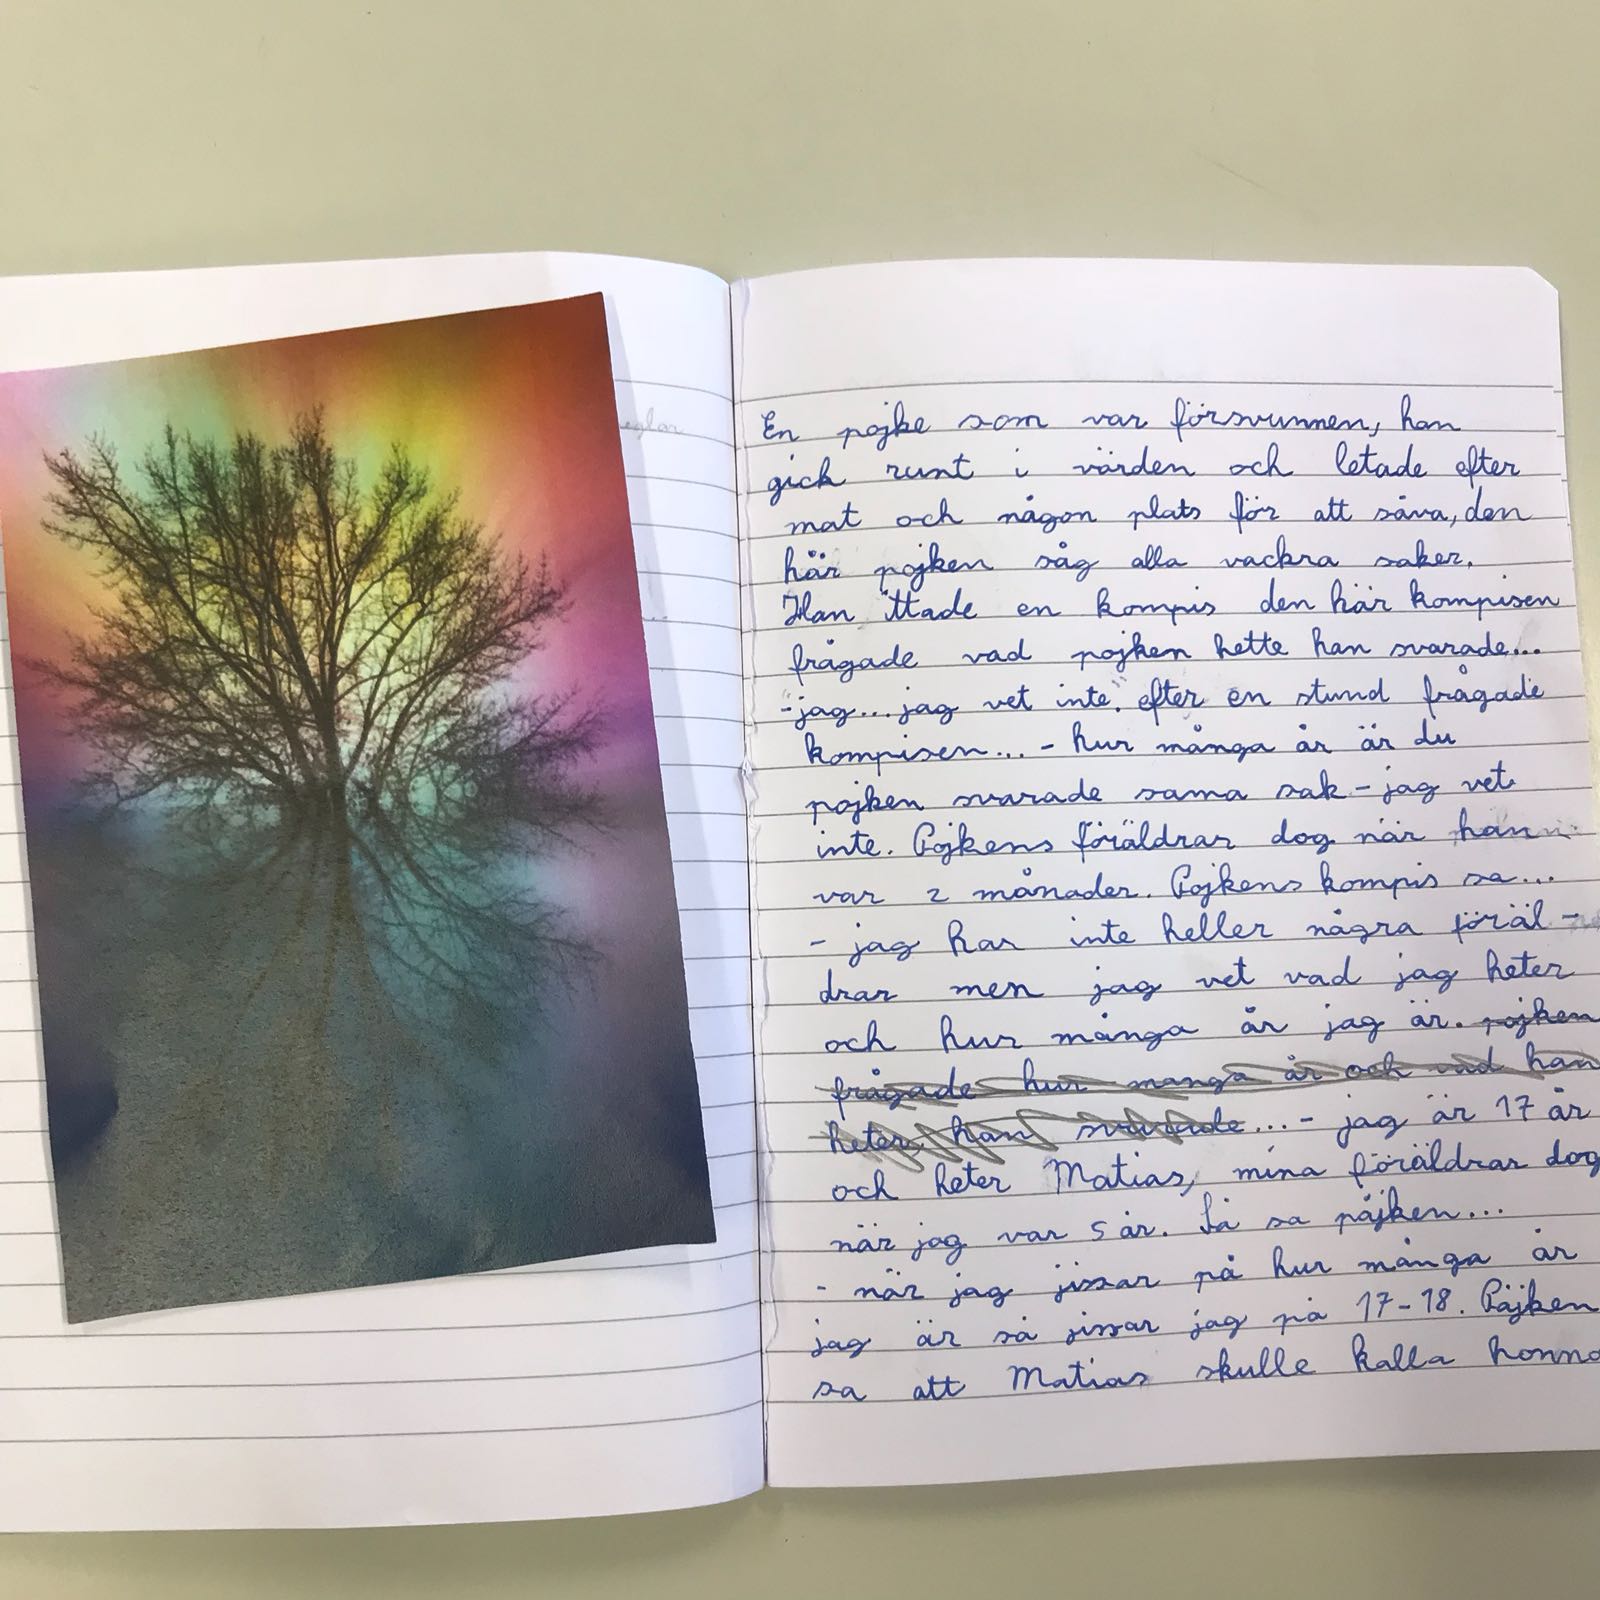 En pojke som var försvunnen, han
gick runt i värden och letade efter
mat och någon plats för att såva, den
här pojken såg alla vackra saker.
Han ittade en kompis den här kompisen
frågade vad pojken hette han svarade...
-jag... jag vet inte. efter en stund frågade
kompisen... - hur många år är du
pojken svarade sama sak - jag vet
inte. Pojkens föräldrar dog när han
var 2 månader. Pojkens kompis sa...
- jag har inte heller några föräl-
drar men jag vet vad jag heter
och hur många år jag är. pojken
frågade hur manga år och vad han
heter, han svarade... - jag är 17 år
och heter Matias, mina föräldrar dog
när jag var 5 år. Så sa påjken...
- när jag jissar på hur många år
jag är så jissar jag på 17-18. Påjken
sa att Matias skulle kalla honno